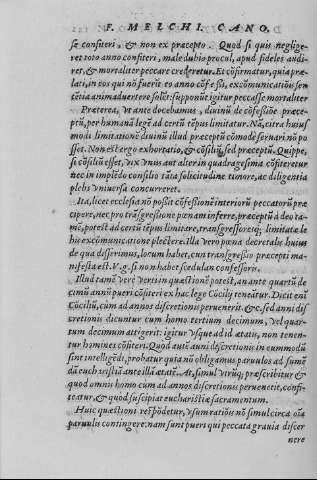 F. MELCHI. CANO,
se confiteri, & non ex præcepto. Quod si quis neglige-
ret toto anno confiteri, male dubio procul, apud fideles audi-
ret, & mortaliter peccare crederetur. Et cõfirmatur, quia præ-
lati, in eos qui nõ fuerĩt eo anno cõfessi, excõmunicatiõis sen-
tẽtia animaduertere solẽt: supponũt igitur peccasse mortaliter
Præterea, vt ante docebamus, diuinũ de cõfessiõe præce-
ptũ, per humanã legẽ ad certũ tẽpus limitatur. Nã, citra huius-
modi limitationẽ diuinũ illud præceptũ cõmodè seruari nõ po
sset. Non est ergo exhortatio, & cõsiliũ, sed præceptũ. Quippe,
si cõsiliũ esset, vix vnus aut alter in quadragesima cõfiteretur
nec in implẽdo consilio tãta solicitudine timore, ac diligentia
plebs vniuersa concurreret.
Ita, licet ecclesia nõ possit cõfessionẽ interiorũ peccatorũ præ
cipere, nec pro trãsgressione pœnam inferre, præceptũ à deo ta-
mẽ, potest ad certũ tẽpus limitare, trãsgressoresq; limitatæ le
his excõmunicatione plectere. Illa vero pœna decretalis huius
de qua disserimus, locum habet, cum trãsgressio præcepti ma-
nifesta est. V. g. si non habet scedulam confessoris.
Illud tamẽ verè verti in quæstionẽ potest, an ante quartũ de
cimũ annũ pueri cõfiteri ex hac lege Cõcilij teneãtur. Dicit enĩ
Cõciliũ, cum ad annos discretionis peruenerit. &c. sed anni di
scretionis dicuntur cum homo tertium decimum, vel quar-
tum decimum attigerit: igitur vsque ad id ætatis, non tenen-
tur homines cõfiteri. Quòd autẽ anni discretionis in eummodũ
sint intelligẽdi, probatur quia nõ obligamus paruulos ad sume
dã eucharistiã ante illã ætatẽ. At, simul vtrũq; præscribitur &
quod omnis homo cùm ad annos discretionis peruenerit, confi-
teatur, & quod suscipiat eucharistiæ sacramentum.
Huic quæstioni respõdetur, vsum ratiõis nõ simul circa oĩa
paruulis contingere. nam sunt pueri qui peccata grauia discer
nere